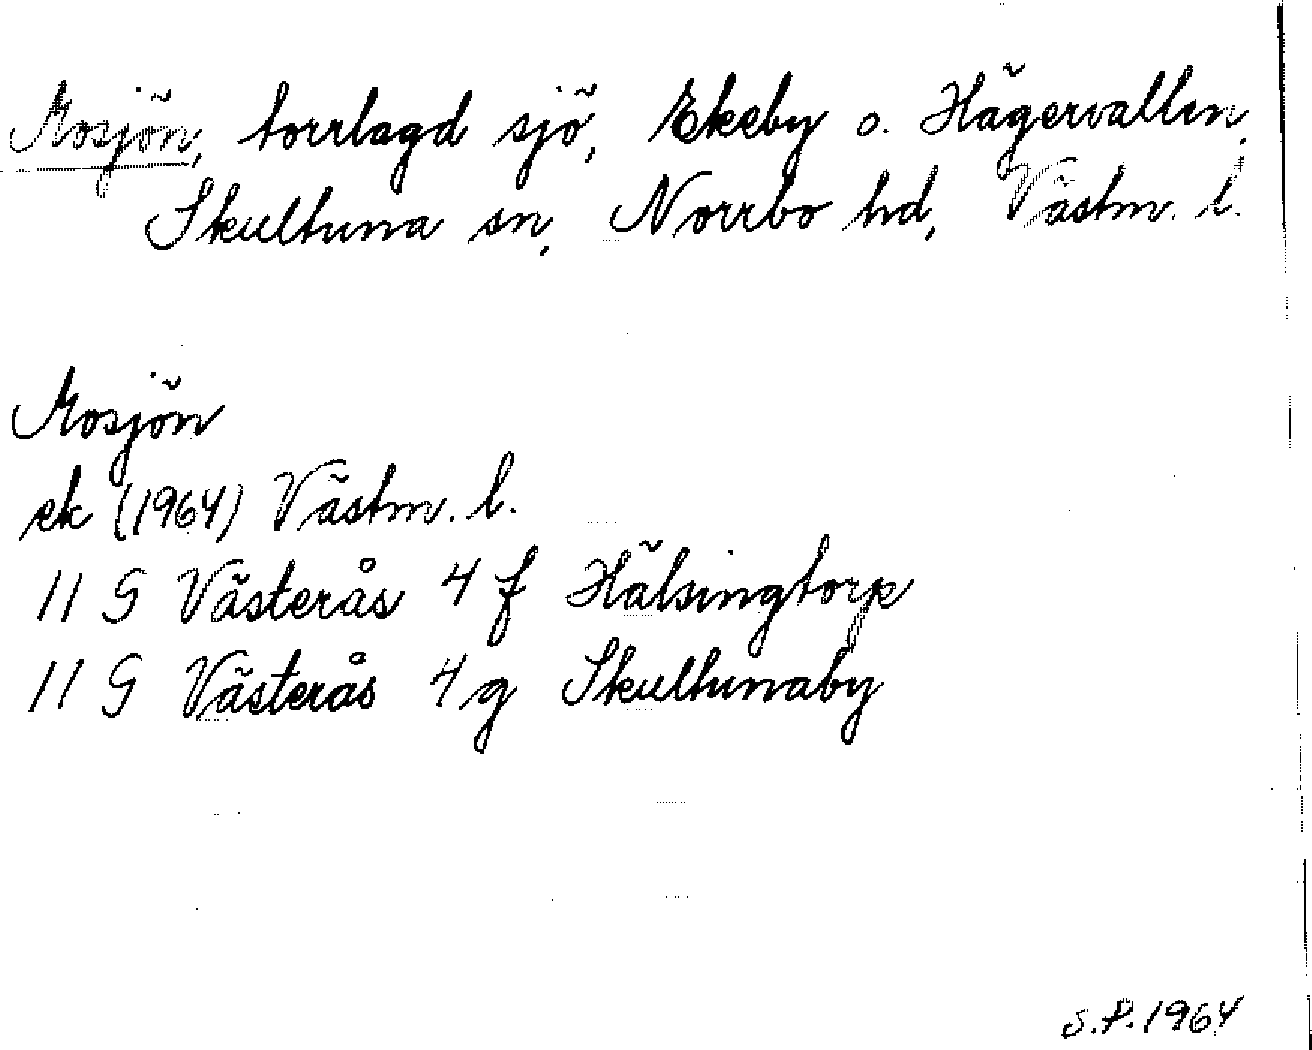 Mosjön, torrlagd sjö, Ekeby o. Hägervallen,
Skultuna sn, Norrbo hd, Västm. l.
Mosjön
ek (1964) Västm. l.
11 G Västerås 4 f Hälsingtorp
11 G Västerås 4 g Skultunaby
S.P. 1964